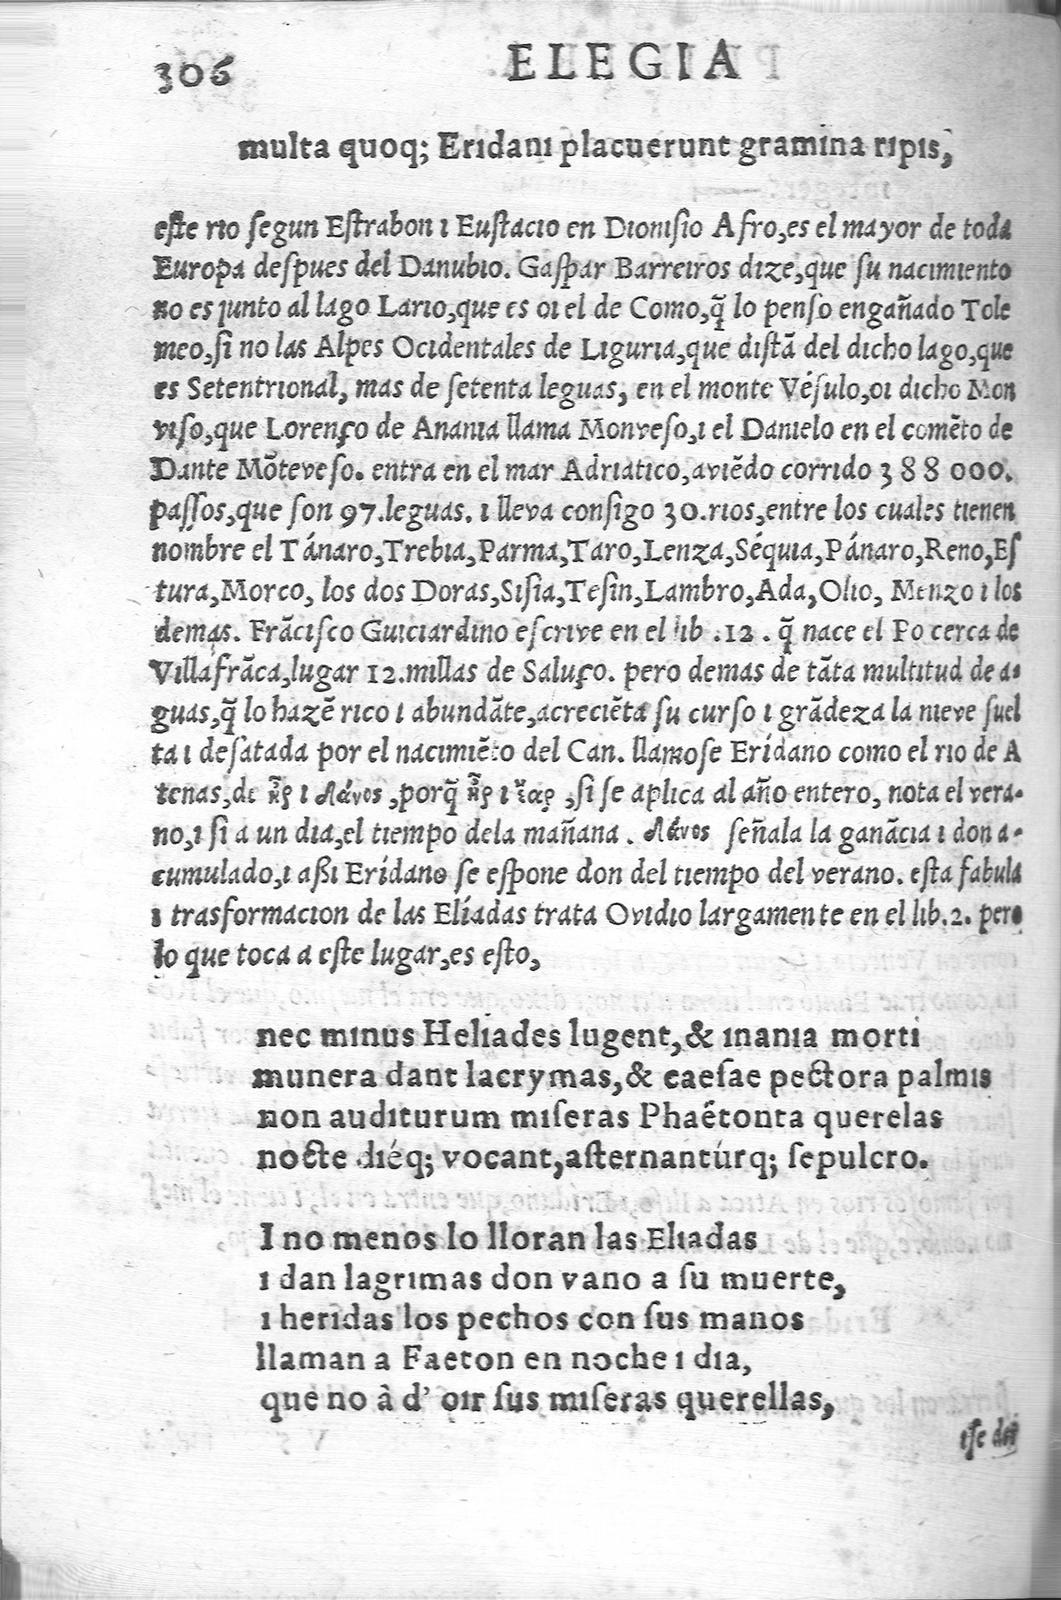 306 ELEGIA
multa quoq; Eridani placuerunt gramina ripis,
este rio ſegun Eſtrabon i Euſtacio en Dioniſio Afro,es el mayor de toda
Europa deſpues del Danubio. Gaſpar Barreiros dize,que ſu nacimiento
no es junto al lago Lario,que es oi el de Como,q̃ lo penſo engañado Tole
meo,ſi no las Alpes Ocidentales de Liguria,que diſtã del dicho lago,que
es Setentrional, mas de ſetenta leguas, en el monte Véſulo,oi dicho Mon
viſo,que Lorenço de Anania llama Monveſo,i el Danielo en el comẽto de
Dante Mõteveſo. entra en el mar Adriatico,aviẽdo corrido 388000.
paſſos,que ſon 97.leguas. i lleva conſigo 30.rios,entre los cuales tienen
nombre el Tánaro,Trebia,Parma,Taro,Lenza,Séquia,Pánaro,Reno,Eſ
tura,Morco, los dos Doras,Siſia,Teſin,Lambro,Ada,Olio, Menzo i los
demas. Frãciſco Guiciardino eſcrive en el lib .12 . q̃ nace el Po cerca de
Villafrãca,lugar 12.millas de Saluço. pero demas de tãta multitud de a-
guas,q̃ lo hazẽ rico i abundãte,acreciẽta ſu curſo i grãdeza la nieve ſuel
ta i deſatada por el nacimiẽto del Can. llamoſe Erídano como el rio de A
tenas,de ἦρ i δάνος ,porq̃ ἦρ i ἔαρ ,ſi ſe aplica al año entero, nota el vera-
no,i ſi a un dia,el tiempo dela mañana . δάνος ſeñala la ganãcia i don a-
cumulado,i aßi Erídano ſe eſpone don del tiempo del verano. eſta fabula
i trasformacion de las Elíadas trata Ovidio largamente en el lib.2. pero
lo que toca a eſte lugar,es eſto,
nec minus Heliades lugent,& inania morti
munera dant lacrymas,& caeſae pectora palmis
non auditurum miſeras Phaëtonta querelas
nocte diéq; vocant,aſternantúrq; ſepulcro.
I no menos lo lloran las Eliadas
i dan lagrimas don vano a ſu muerte,
i heridas los pechos con ſus manos
llaman a Faeton en noche i dia,
que no à d' oir ſus miſeras querellas,
iſe der